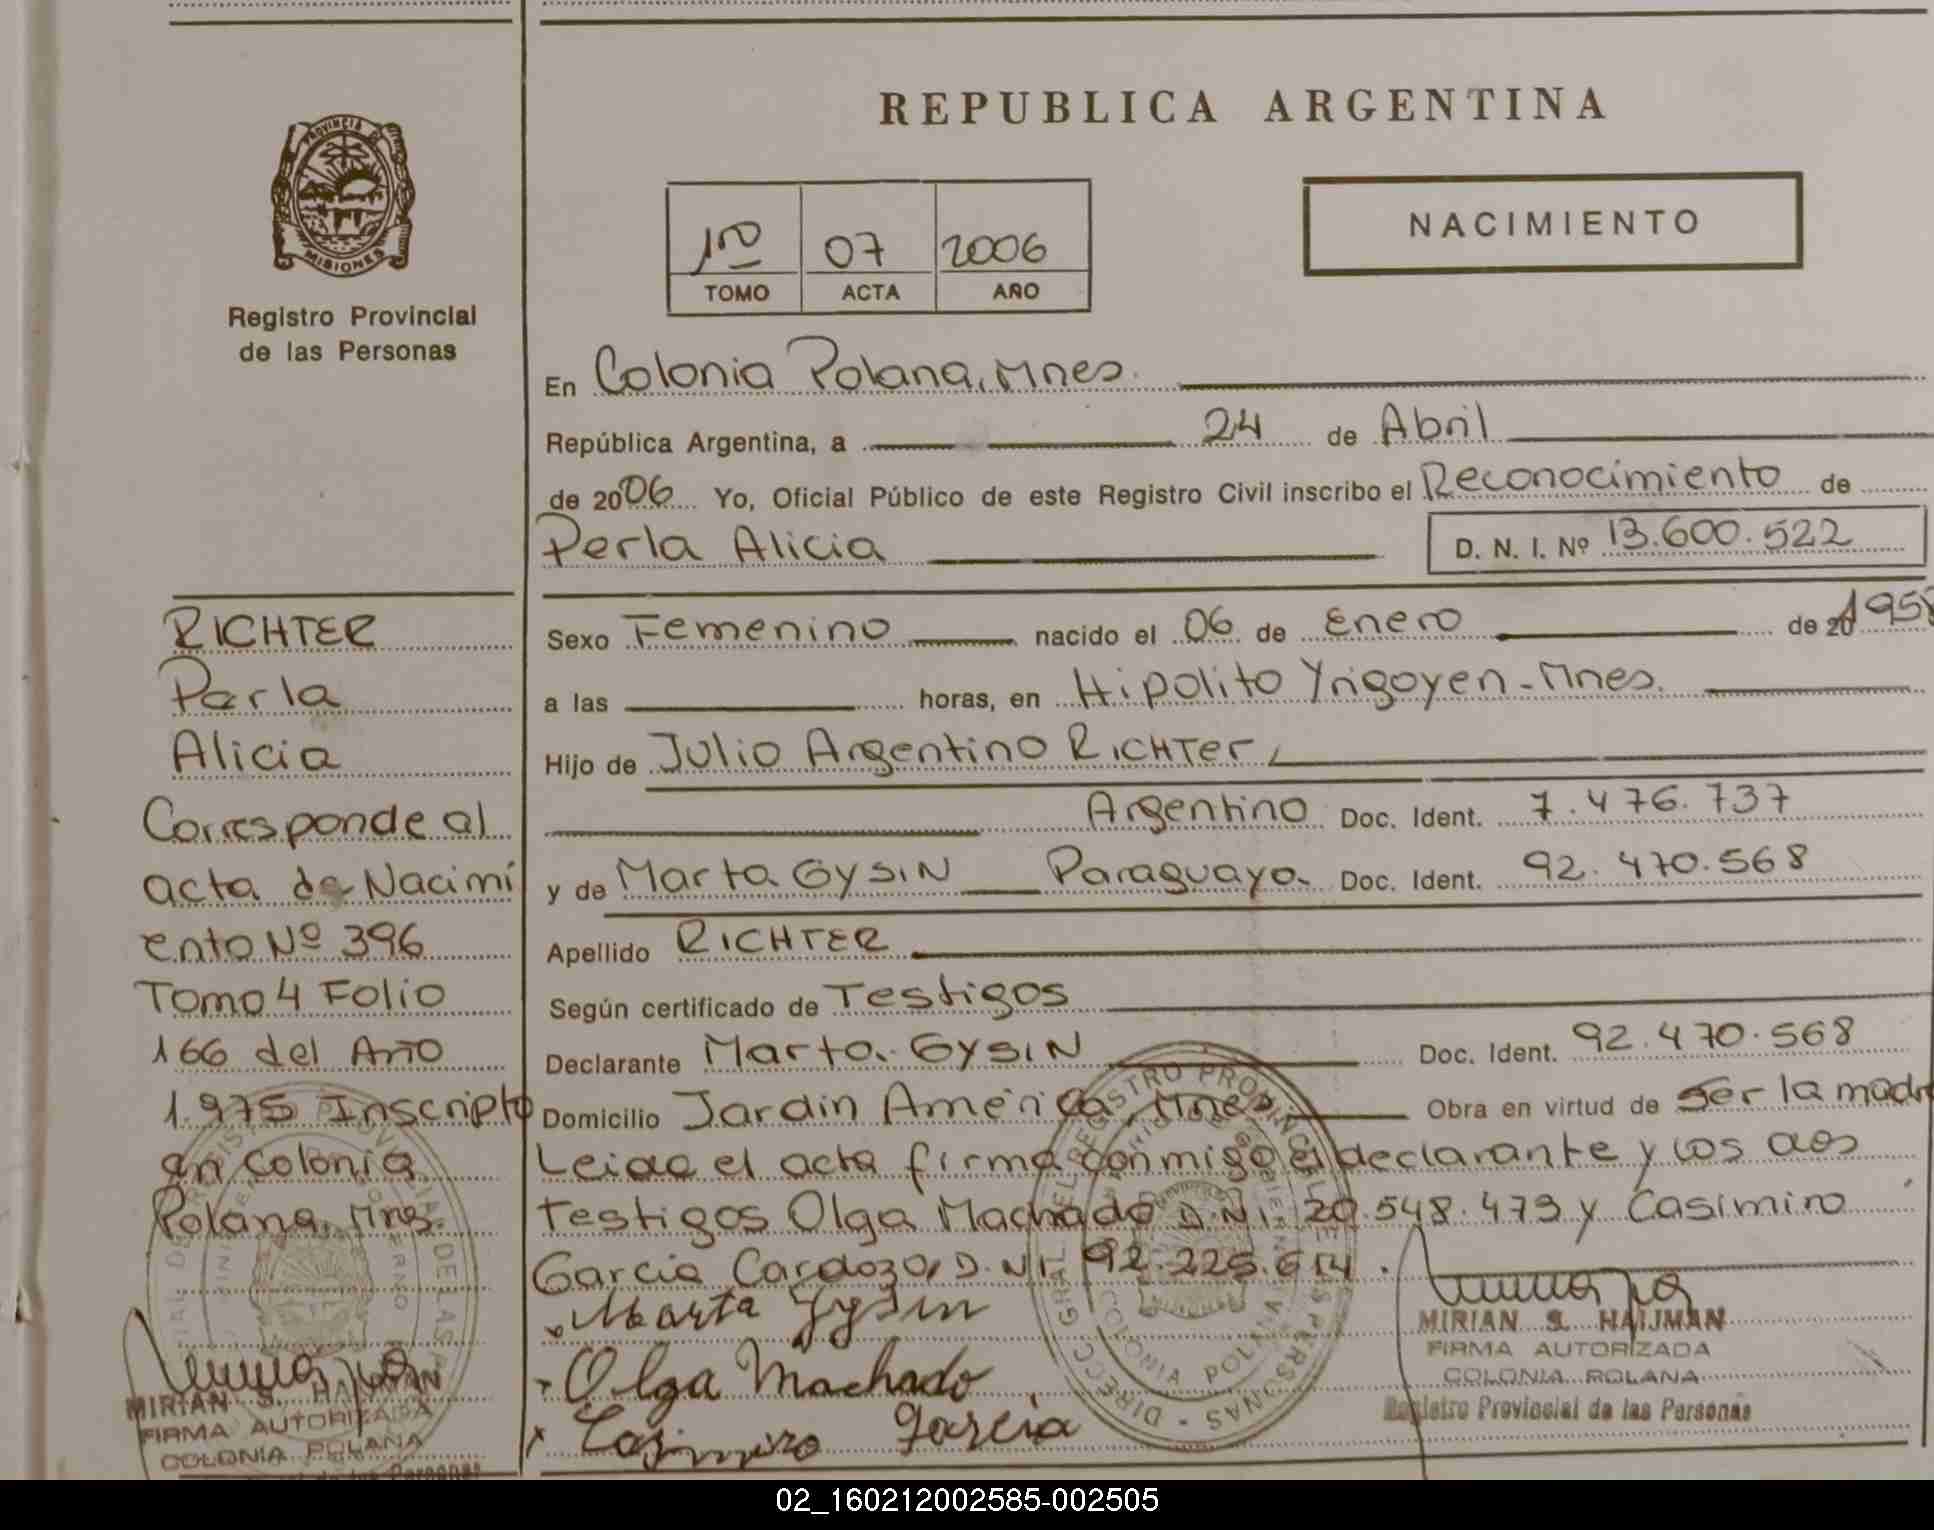 REPUBLICA ARGENTINA
PROVINCIA DE
MISIONES
Registro Provincial
de las Personas
1ro 07 2006
TOMO ACTA AÑO
NACIMIENTO
En Colonia Polana, Mnes.
República Argentina, a 24 de Abril
de 2006 Yo, Oficial Público de este Registro Civil inscribo el Reconocimiento de
Perla Alicia D. N. I. Nº 13.600.522
Sexo Femenino nacido el 06 de Enero de 20 1958
a las horas, en Hipolito Yrigoyen - Mnes.
Hijo de Julio Argentino RICHTer
Argentino Doc. Ident. 7.476.737
y de Marta GYSIN Paraguaya Doc. Ident. 92.470.568
Apellido RICHTER
Según certificado de Testigos
Declarante Marta GYSIN Doc. Ident. 92.470.568
Domicilio Jardin América, Mnes. Obra en virtud de Ser la madre
Leida el acta firma conmigo el declarante y los dos
testigos Olga Machado D.N.I. 20.548.473 y Casimiro
Garcia Cardozo, D.N.I. 92.225.614.
Marta Gysin
Olga Machado
Casimiro Garcia
MIRIAN S. HAIJMAN
FIRMA AUTORIZADA
COLONIA POLANA
Registro Provincial de las Personas
RICHTER
Perla
Alicia
Corresponde al
acta de Nacimi
ento Nº 396
Tomo 4 Folio
166 del Año
1.975 Inscripto
en Colonia
Polana, Mnes.
MIRIAN S. HAIJMAN
FIRMA AUTORIZADA
COLONIA POLANA
02_160212002585-002505